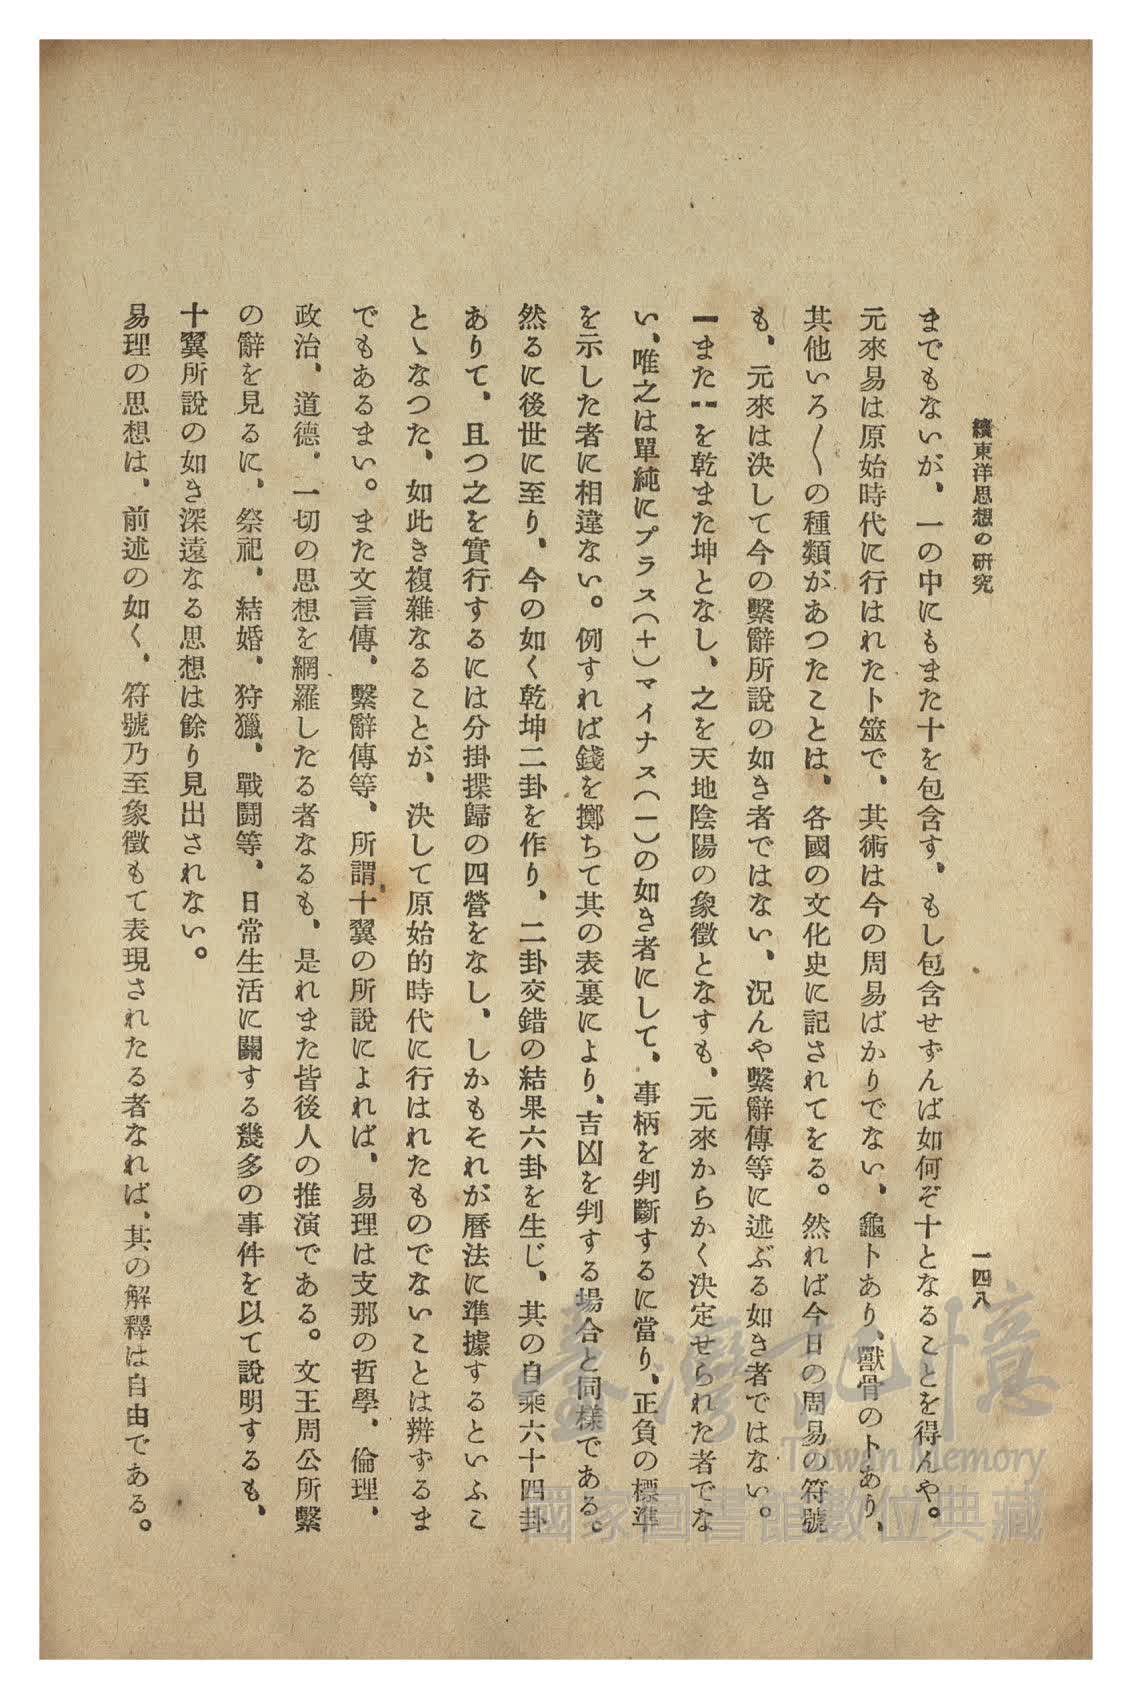 續東洋思想の研究
一四八
までもないが、一の中にもまた十を包含す、もし包含せずんば如何ぞ十となることを得んや。
元來易は原始時代に行はれた卜筮で、其術は今の周易ばかりでない、龜卜あり、獸骨の卜あり、
其他いろ〱の種類があつたことは、各國の文化史に記されてをる。然れば今日の周易の符號
も、元來は決して今の繫辭所說の如き者ではない、況んや繫辭傳等に述ぶる如き者ではない。
⚊また⚋を乾また坤となし、之を天地陰陽の象徵となすも、元來からかく決定せられた者でな
い、唯之は單純にプラス(＋)マイナス(－)の如き者にして、事柄を判斷するに當り、正負の標準
を示した者に相違ない。例すれば錢を擲ちて其の表裏により、吉凶を判する場合と同樣である。
然るに後世に至り、今の如く乾坤二卦を作り、二卦交錯の結果六卦を生じ、其の自乘六十四卦
ありて、且つ之を實行するには分掛揲歸の四營をなし、しかもそれが曆法に準據するといふこ
とゝなつた、如此き複雜なることが、決して原始的時代に行はれたものでないことは辨ずるま
でもあるまい。また文言傳、繫辭傳等、所謂十翼の所說によれば、易理は支那の哲學、倫理、
政治、道德、一切の思想を網羅したる者なるも、是れまた皆後人の推演である。文王周公所繫
の辭を見るに、祭祀、結婚、狩獵、戰鬪等、日常生活に關する幾多の事件を以て說明するも、
十翼所說の如き深遠なる思想は餘り見出されない。
易理の思想は、前述の如く、符號乃至象徵もて表現されたる者なれば、其の解釋は自由である。
臺灣記憶
Taiwan Memory
國家圖書館數位典藏